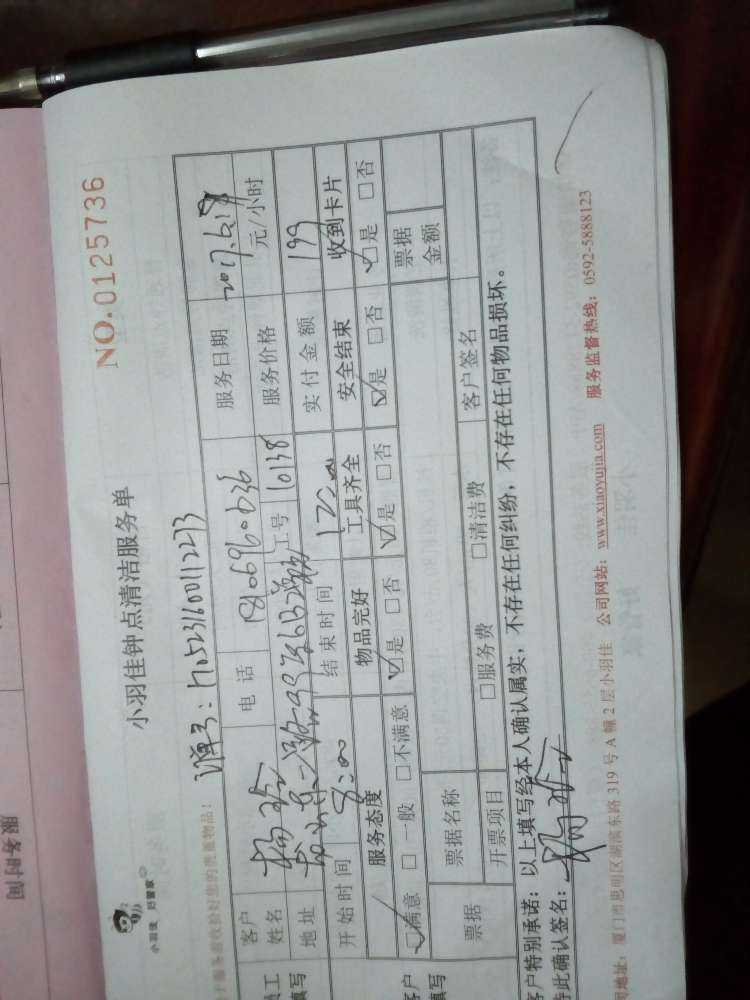 小羽佳 好管家
小羽佳钟点清洁服务单
NO.0125736
服务前收捡好您的贵重物品!
单号:
员工填写
客户姓名
电话
服务日期
地址
工号 10138
服务价格 元/小时
开始时间 8:00
结束时间 12:00
实付金额 199
客户填写
服务态度
物品完好
工具齐全
安全结束
收到卡片
☑满意 □一般 □不满意
☑是 □否
☑是 □否
☑是 □否
☑是 □否
票据
票据名称
票据金额
开票项目
□服务费 □清洁费
客户签名
客户特别承诺:以上填写经本人确认属实,不存在任何纠纷,不存在任何物品损坏。
特此确认签名:
地址:厦门市思明区湖滨东路 319 号 A 幢 2 层小羽佳 公司网站:www.xiaoyujia.com 服务监督热线:0592-5888123
服务时间